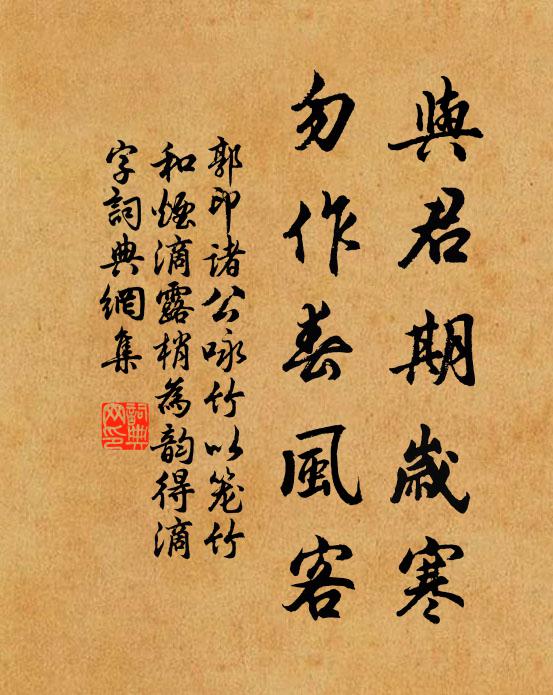 與君期歲寒
勿作春風客
郭印諸公咏竹以笼竹
和煙滴露梢為韵得滴
字詞典網集
詞典
网印